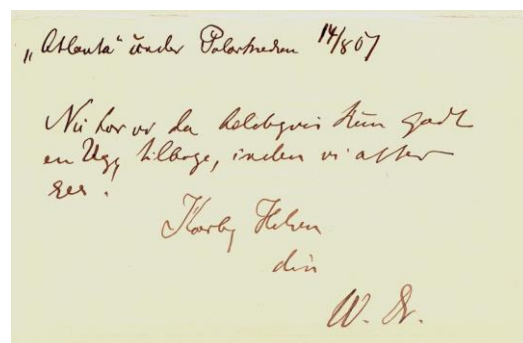 „Atlanta“ under Polarkredsen 14/8 07
Nu har vi da heldigvis kun godt
en Uge tilbage, inden vi atter
ses!
Kærlig Hilsen
din
W. Dr.